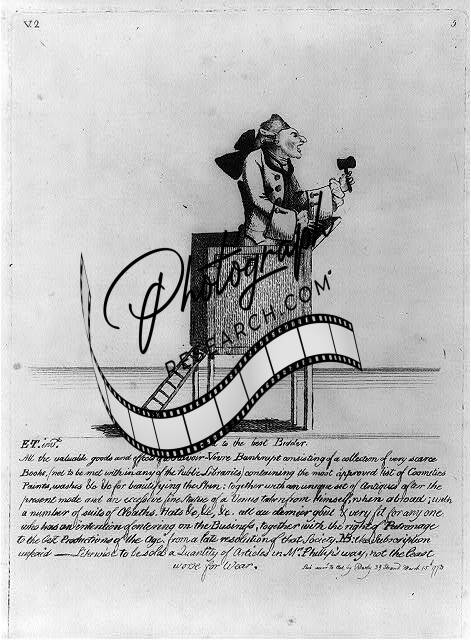 V. 2
5
Photograph
RESEARCH.COM
E.T. invt.
to the best Bidder.
All the valuable goods and effects of a Scavoir Vivre Bankrupt consisting of a collection of very scarce
Books, (not to be met with in any of the Public Libraries) containing the most approved list of Cosmetics
Paints, washes &c &c for beautifying the Skin; together with an unique set of Antiques after the
present mode and an excessive fine Statue of a Venus taken from himself, when abroad; with
a number of suits of Cloaths, Hats &c, &c, &c. all au dernier goût & very fit for any one
who has an intention of entering on the Business, together with the right of Patronage
to the Cost Productions of the Age. from a late resolution of that Society. NB: the Subscription
unpaid — Likewise to be sold a Quantity of Articles in Mr. Phillip's way, not the least
worse for Wear.
Pub by Darly 39 Strand March 15th 1773